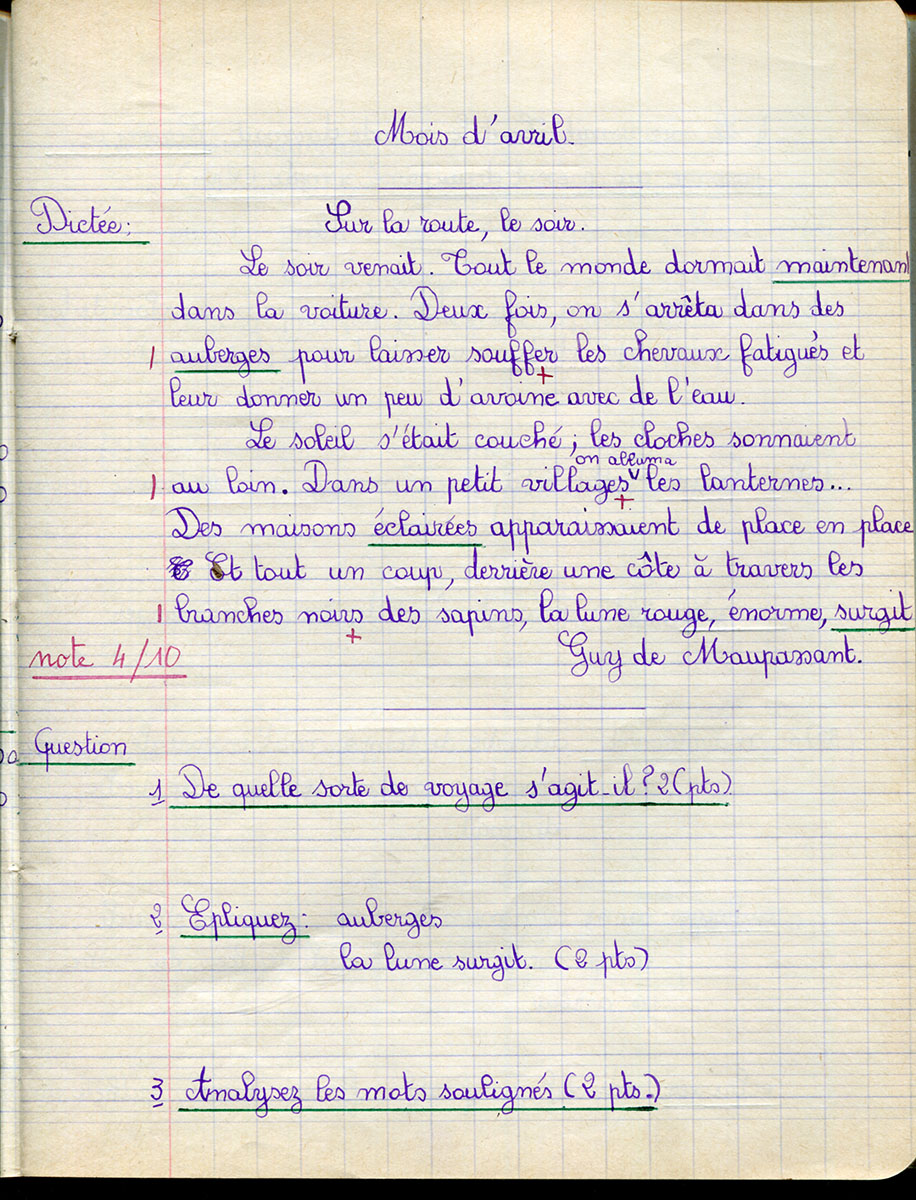 Mois d'avril.
Dictée: Sur la route, le soir.
Le soir venait. Tout le monde dormait maintenant
dans la voiture. Deux fois, on s'arrêta dans des
1 auberges pour laisser souffer les chevaux fatigués et
leur donner un peu d'avoine avec de l'eau.
Le soleil s'était couché; les cloches sonnaient
on alluma
1 au loin. Dans un petit villages les lanternes...
Des maisons éclairées apparaissaient de place en place
Et tout un coup, derrière une côte à travers les
1 branches noirs des sapins, la lune rouge, énorme, surgit
note 4/10 Guy de Maupassant.
Question
1 De quelle sorte de voyage s'agit-il? 2(pts)
2 Epliquez: auberges
la lune surgit. (2 pts)
3 Analysez les mots soulignés (2 pts.)